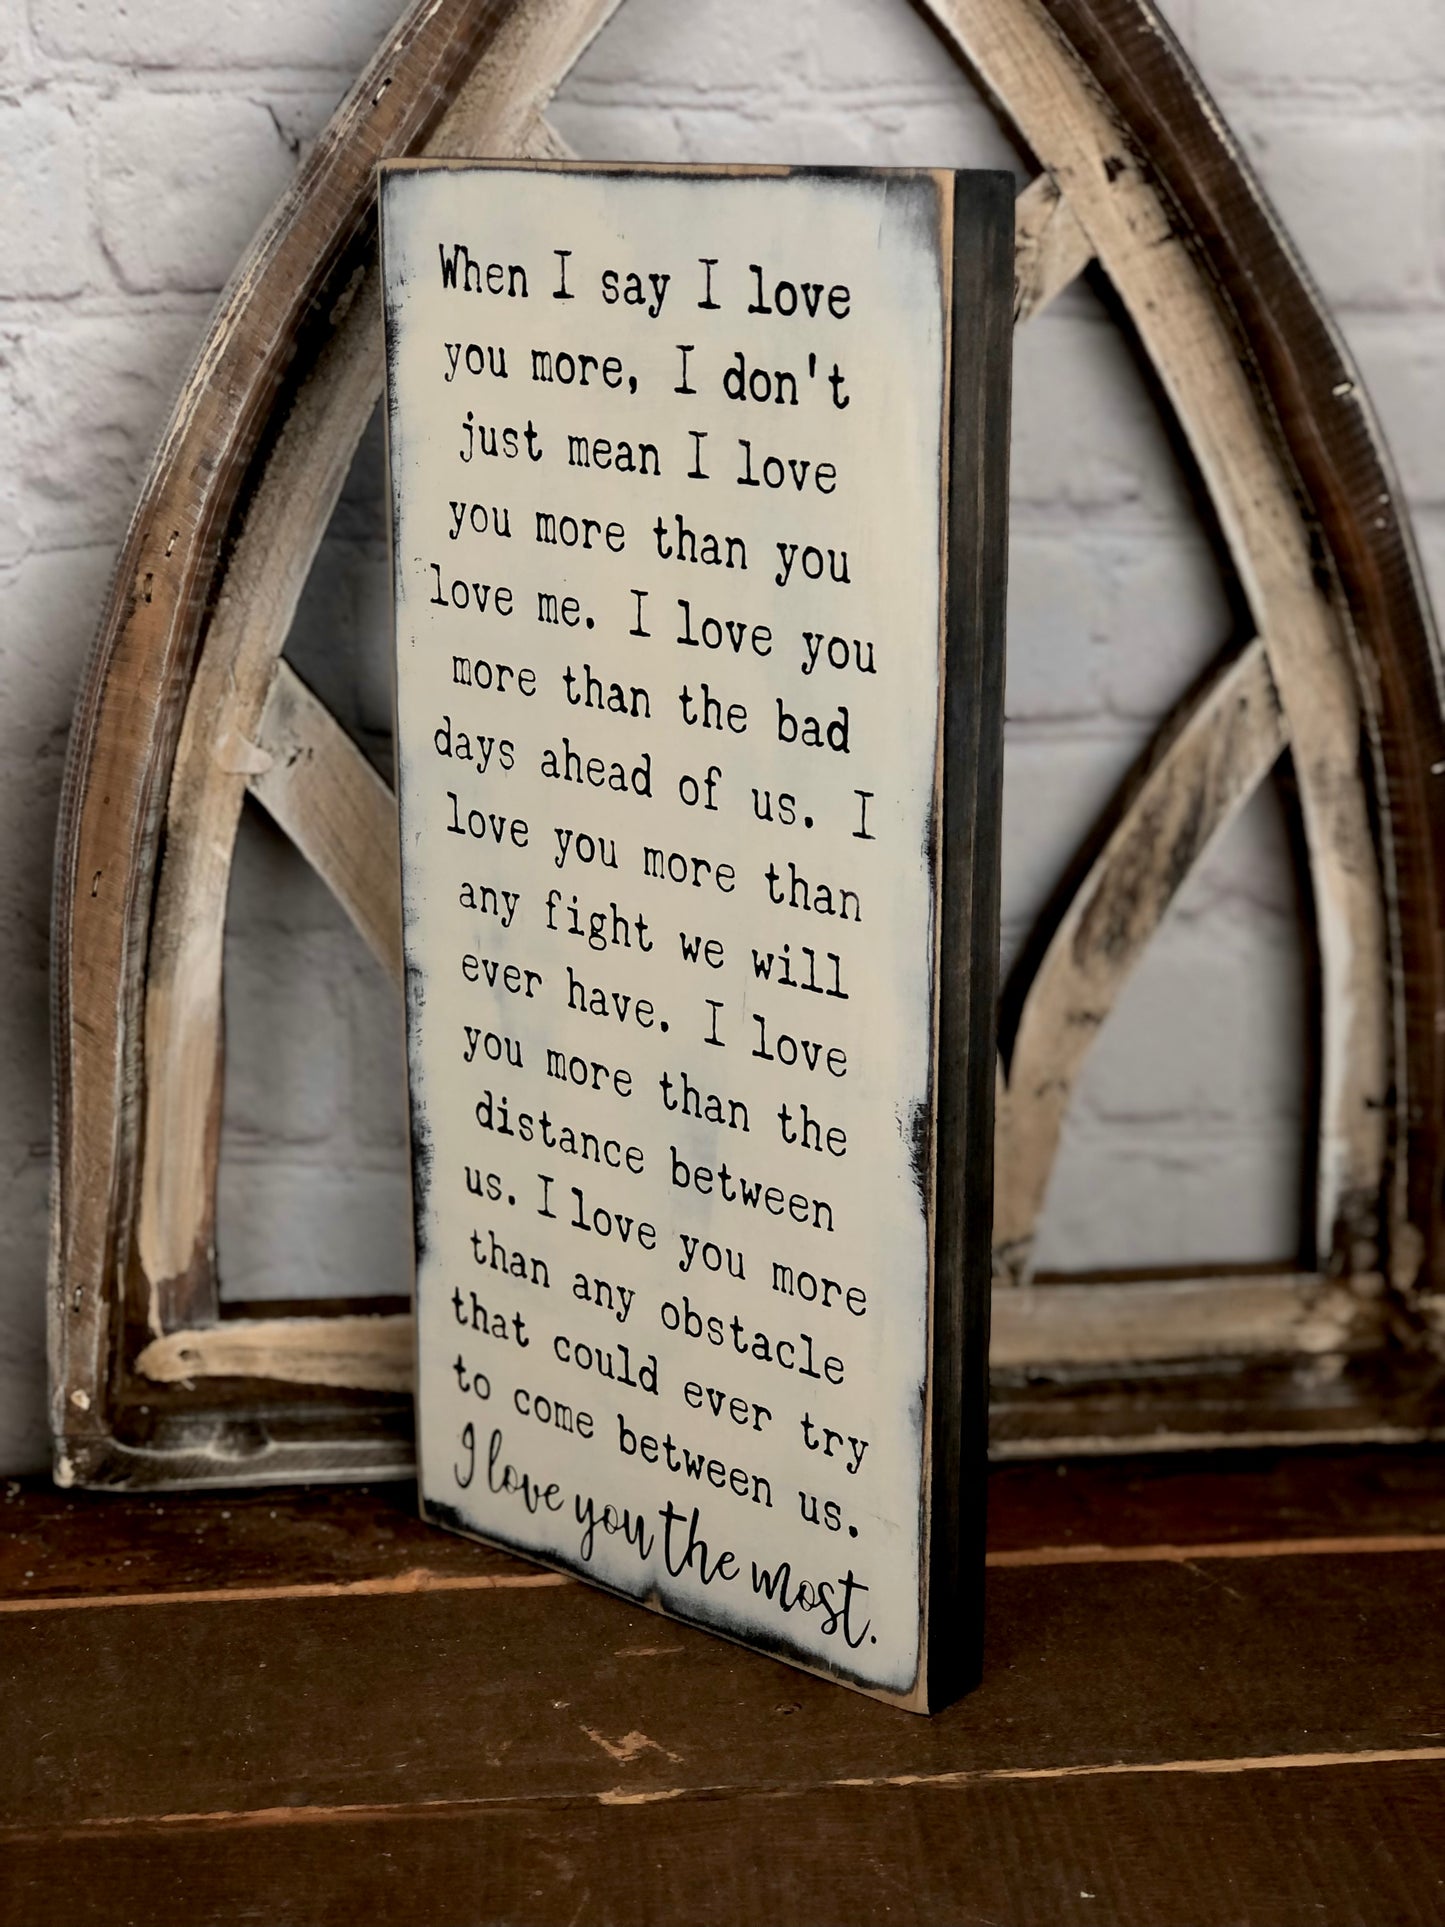 When I say I love
you more, I don't
just mean I love
you more than you
love me. I love you
more than the bad
days ahead of us. I
love you more than
any fight we will
ever have. I love
you more than the
distance between
us. I love you more
than any obstacle
that could ever try
to come between us.
I love you the most.